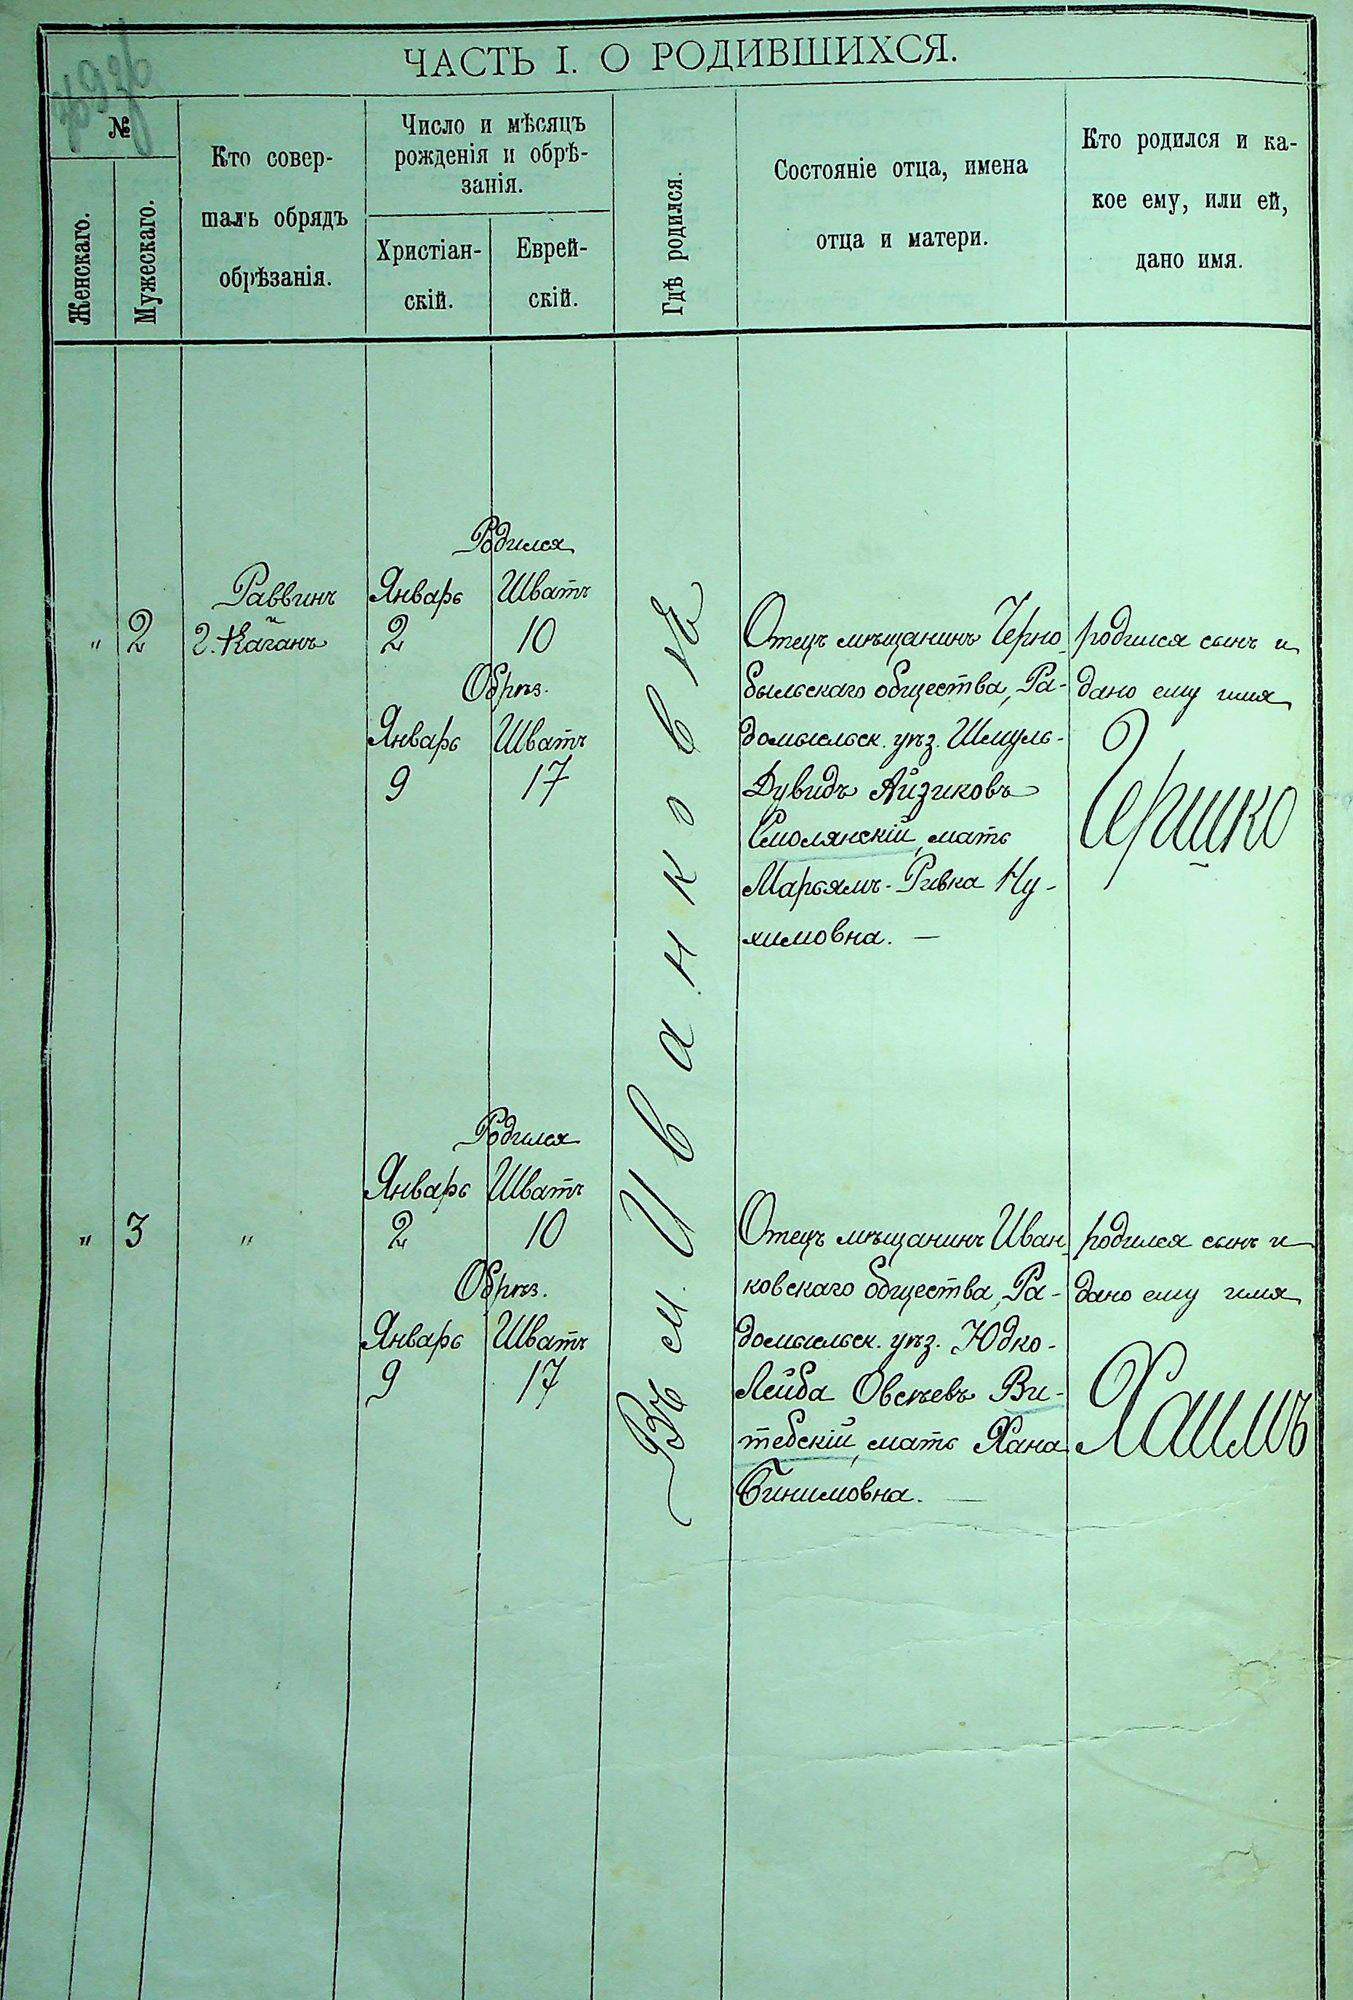 ЧАСТЬ I. О РОДИВШИХСЯ.
№
Женскаго.
Мужескаго.
Кто совер-
шалъ обрядъ
обрѣзанія.
Число и мѣсяцъ
рожденія и обрѣ-
занія.
Христіан-
скій.
Еврей-
скій.
Гдѣ родился.
Состояніе отца, имена
отца и матери.
Кто родился и ка-
кое ему, или ей,
дано имя.
"
2
Раввинъ
Каганъ
Родился
Январь Шватъ
2 10
Обрѣз.
Январь Шватъ
9 17
Въ м. Иванковѣ
Отецъ мѣщанинъ Черно-
быльскаго общества, Ра-
домысльск. уѣз. Шмуль-
Дувидъ Айзиковъ
Смолянскій, мать
Марьямъ-Ривка Ну-
химовна. —
родился сынъ и
дано ему имя
Гершко
"
3
"
Родился
Январь Шватъ
2 10
Обрѣз.
Январь Шватъ
9 17
Отецъ мѣщанинъ Иван-
ковскаго общества, Ра-
домысльск. уѣз. Юдко-
Лейба Овсѣевъ Ви-
тебскій, мать Хана
Бинимовна. —
родился сынъ и
дано ему имя
Хаимъ